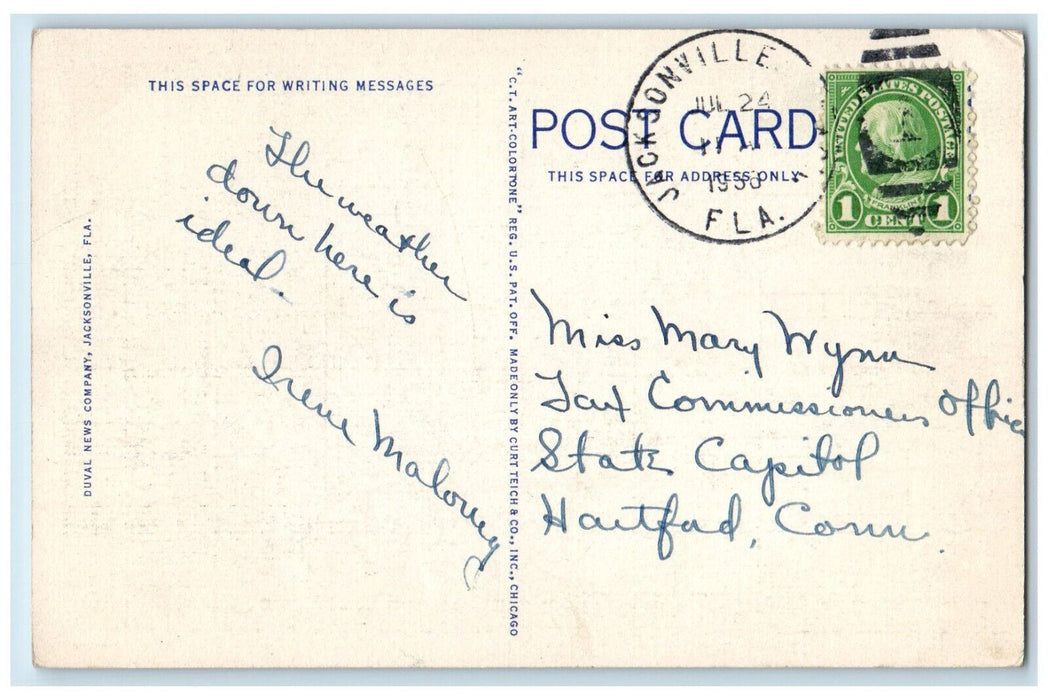 THIS SPACE FOR WRITING MESSAGES
The weather
down here is
ideal.
Irene Maloney
DUVAL NEWS COMPANY, JACKSONVILLE, FLA.
"C.T. ART-COLORTONE" REG. U.S. PAT. OFF. MADE ONLY BY CURT TEICH & CO., INC., CHICAGO
POST CARD
THIS SPACE FOR ADDRESS ONLY
JACKSONVILLE
JUL 24
FLA.
UNITED STATES POSTAGE
FRANKLIN
1 CENT 1
Miss Mary Wynn
Tax Commissioners Office
State Capitol
Hartford, Conn.